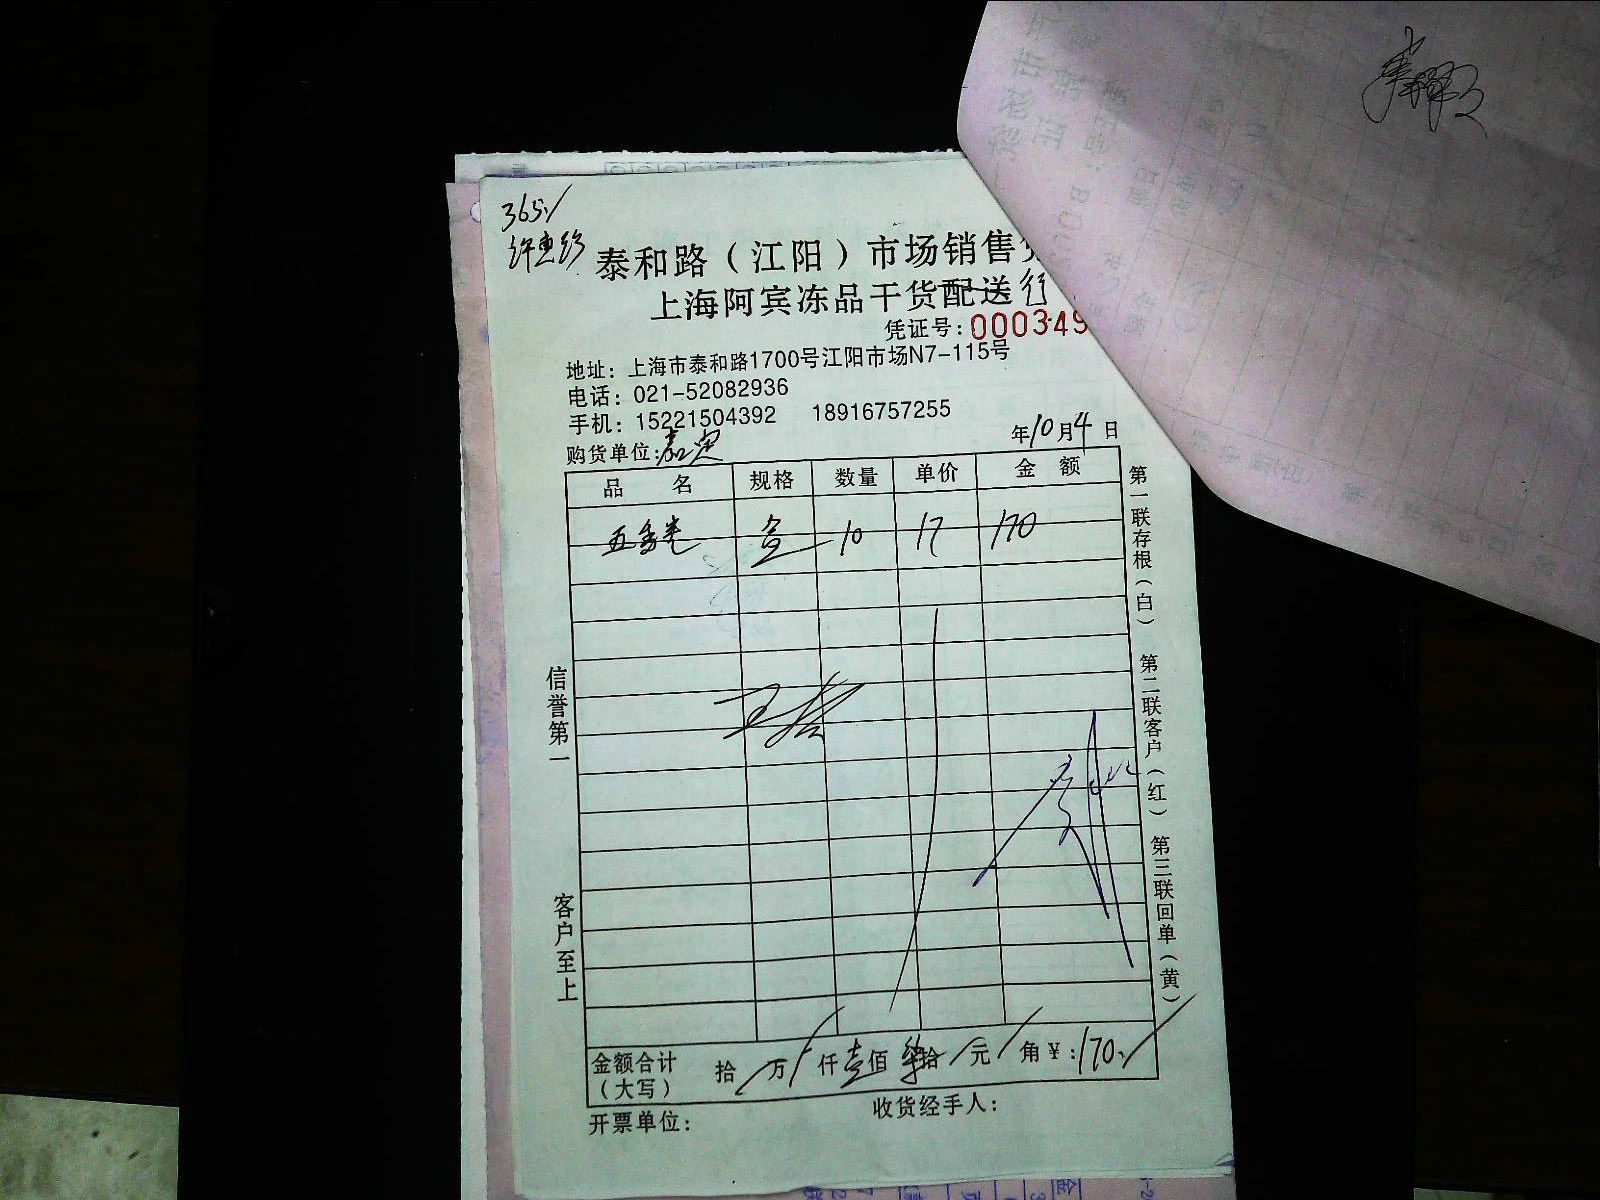 365
许惠珍
泰和路（江阳）市场销售
上海阿宾冻品干货配送行
凭证号：000349
地址：上海市泰和路1700号江阳市场N7-115号
电话：021-52082936
手机：15221504392 18916757255
购货单位：嘉定
年10月4日
品 名 规格 数量 单价 金 额
五香 10 17 170
第一联存根（白） 第二联客户（红） 第三联回单（黄）
信誉第一
客户至上
金额合计（大写） 拾 万 仟壹佰柒拾 元 角￥：170
开票单位：
收货经手人：